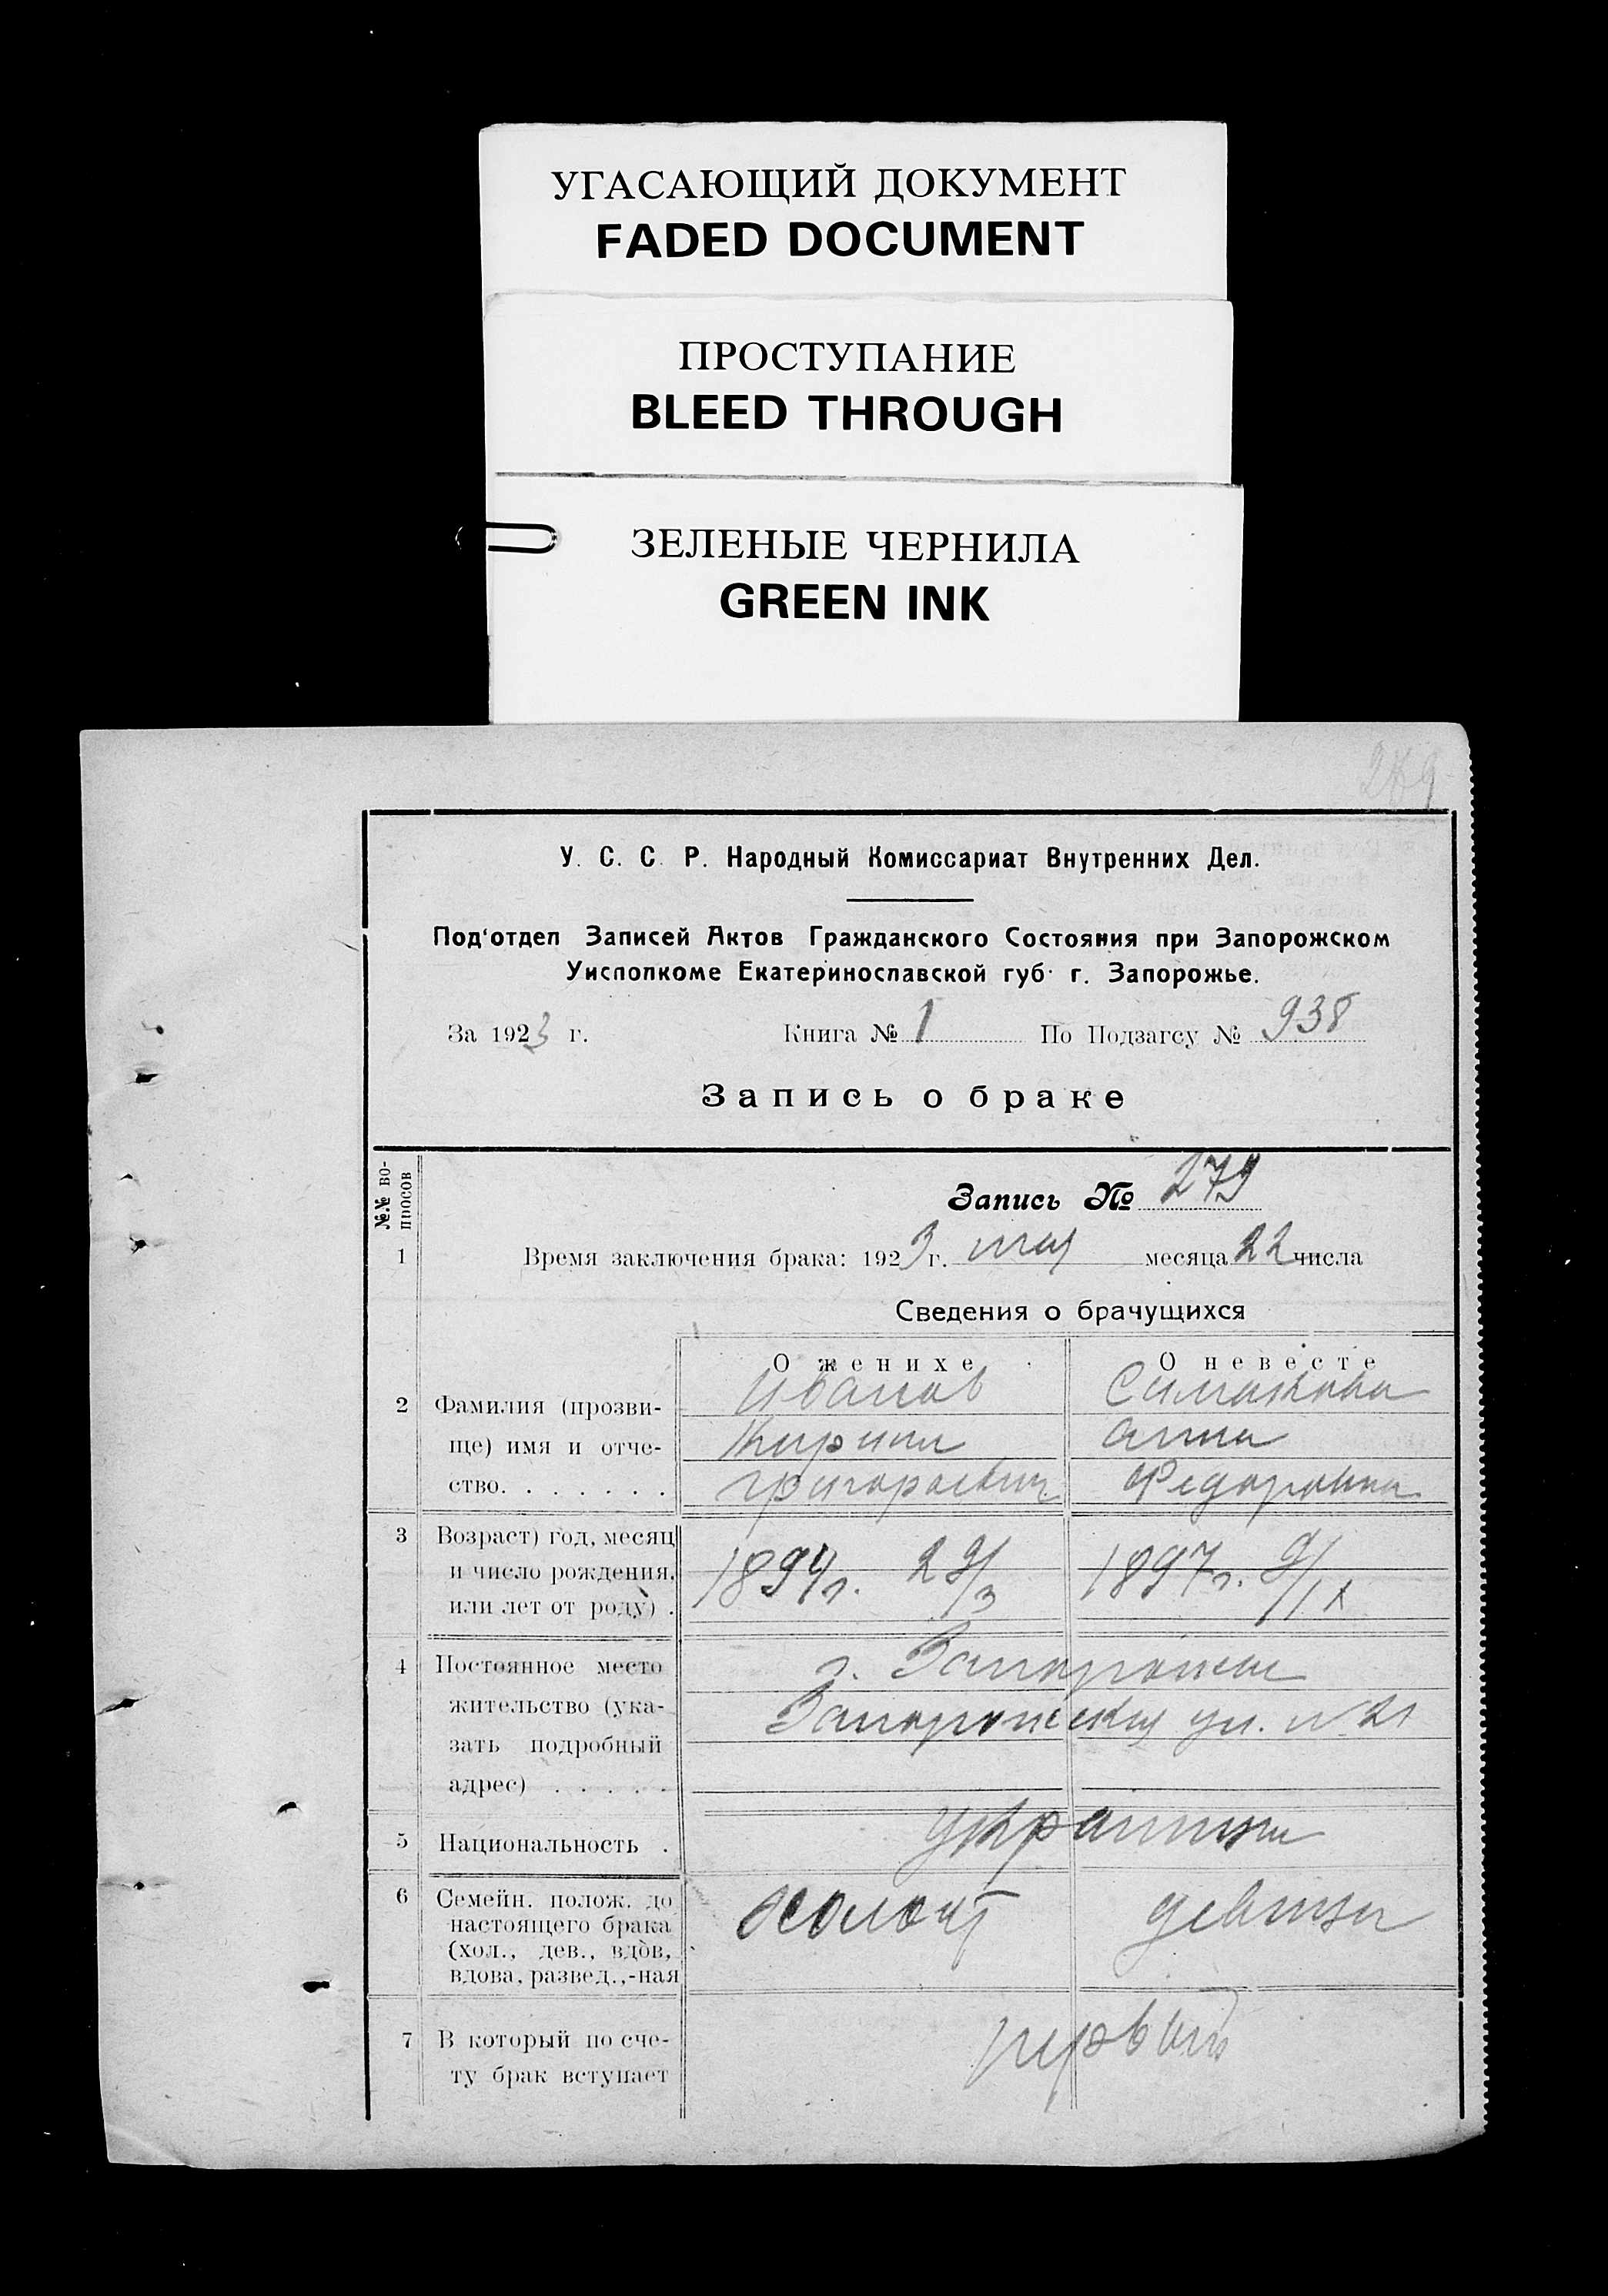 УГАСАЮЩИЙ ДОКУМЕНТ
FADED DOCUMENT
ПРОСТУПАНИЕ
BLEED THROUGH
ЗЕЛЕНЫЕ ЧЕРНИЛА
GREEN INK
У. С. С. Р. Народный Комиссариат Внутренних Дел.
Под'отдел Записей Актов Гражданского Состояния при Запорожском
Уисполкоме Екатеринославской губ. г. Запорожье.
За 1923 г. Книга № 1 По Подзагсу № 938
Запись о браке
№№ вопросов
Запись № 279
1 Время заключения брака: 1923 г. мая месяца 22 числа
Сведения о брачущихся
О женихе О невесте
2 Фамилия (прозви- Иванов Симакова
ще) имя и отче- Кирилл Анна
ство. . . . . . . Григорьевич Федоровна
3 Возраст) год, месяц
и число рождения, 1894 г. 29/3 1897 г. 9/IX
или лет от роду) .
4 Постоянное место г. Запорожье
жительство (ука- Запорожская ул. № 21
зать подробный
адрес) . . . . .
5 Национальность . украинцы
6 Семейн. полож. до
настоящего брака холост девица
(хол., дев., вдов,
вдова, развед.,-ная
7 В который по сче- первый
ту брак вступает